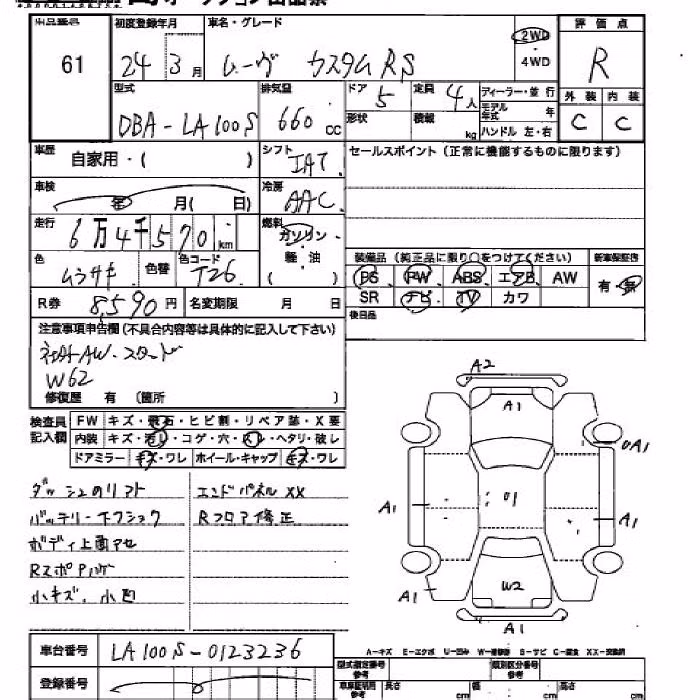 出品番号 初度登録年月 車名・グレード 評価点
61 24 3月 ムーヴ カスタムRS 2WD・4WD R
型式 排気量 ドア 定員 ディーラー・並行 外装 内装
DBA-LA100S 660cc 5 4人 モデル年式 年 C C
形状 積載 kg ハンドル 左・右
車歴 自家用・( ) シフト IAT セールスポイント(正常に機能するものに限ります)
車検 年 月( 日) 冷房 AAC
走行 6万4千570km 燃料 ガソリン・軽油 ( )
色 ムラサキ 色替 色コード T26 装備品(純正品に限り○をつけてください) 新車保証書
PS PW ABS エアB AW 有・無
R券 8,590円 名変期限 月 日 SR ナビ TV カワ
注意事項申告欄(不具合内容等は具体的に記入して下さい) 後日品
社外AW.スタート
W62
修復歴 有 (箇所 )
検査員記入欄 FW キズ・飛石・ヒビ割・リペア跡・X要
内装 キズ・汚レ・コゲ・穴・スレ・ヘタリ・破レ
ドアミラー キズ・ワレ ホイール・キャップ キズ・ワレ
ダッシュのリフト エンドパネルXX
バッテリー Rフロア修正
ボディ上面
Rスポ
小キズ.小凹
A2
A1
A1
A1 A1
W2
A1
A1
車台番号 LA100S-0123236
A-キズ E-エクボ U-凹み W-補修跡 S-サビ C-腐食 XX-交換済
登録番号
型式指定番号 参考 類別区分番号 参考
車庫証明用 参考 長さ cm 幅 cm 高さ cm